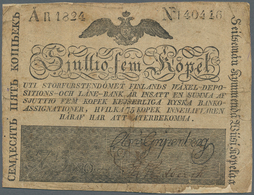 Ап 1824 No 140416
Siuttio fem Kopek
UTI STORFURSTENDÖMET FINLANDS WÄXEL-DEPO-
SITIONS- OCH LÅNE-BANK ÄR INSATT EN SUMMA AF
SJUTTIO FEM KOPEK KEJSERLIGA RYSKA BANKO-
ASSIGNATIONER, HVILKA 75 KOPEK INNEHAFVAREN
HÄRAF HAR ATT ÅTERBEKOMMA.
СЕМДЕСЯТЬ ПЯТЬ КОПѢЕКЪ
Seitsemän kymmendä Wiisi Kopeka